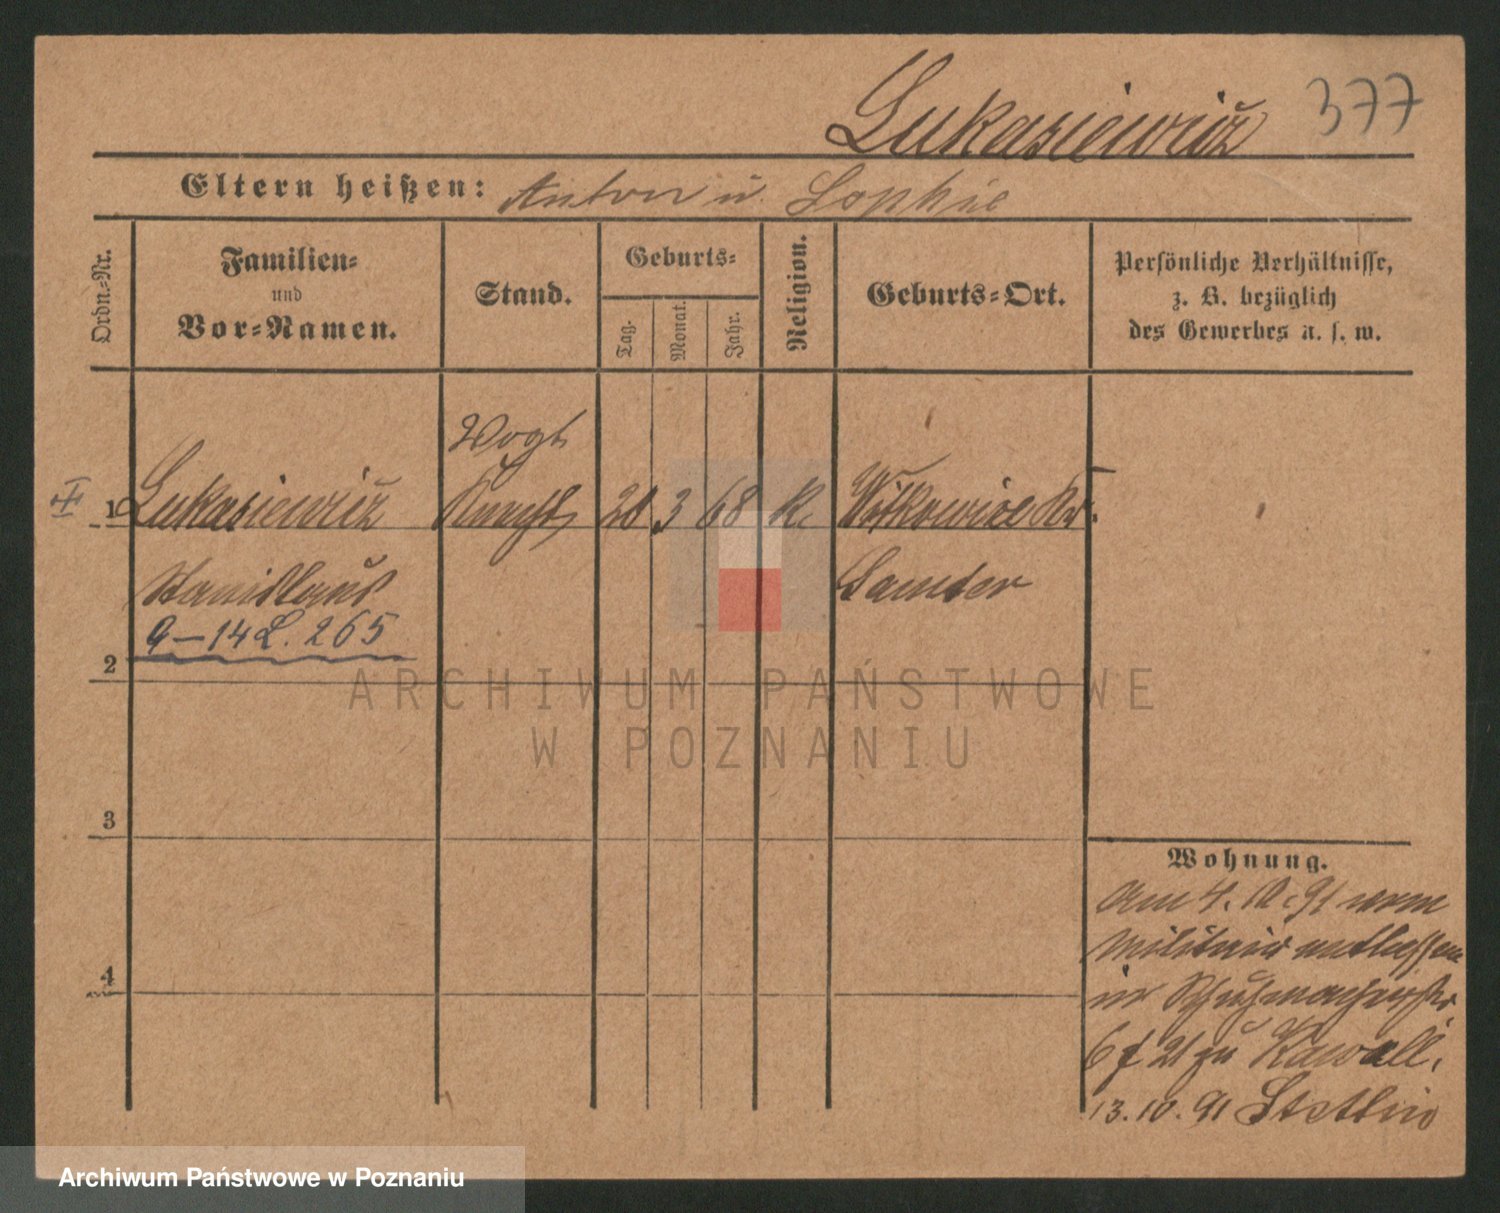 Lukasiewicz 377
Eltern heißen: Anton u. Sophie
Ordn.-Nr.
Familien-
und
Vor-Namen.
Stand.
Geburts-
Tag.
Monat.
Jahr.
Religion.
Geburts-Ort.
Persönliche Verhältnisse,
z. B. bezüglich
des Gewerbes u. s. w.
Vogt
I 1 Lukasiewicz Knecht 28 3 68 K. Witkowice Kr.
Stanislaus Samter
9-14 L. 265
2
3
4
Wohnung.
Am 4. 10. 91 vom
Militair entlassen
6 f 21 zu Kawall.
13. 10. 91 Stettin
ARCHIWUM PAŃSTWOWE
W POZNANIU
Archiwum Państwowe w Poznaniu